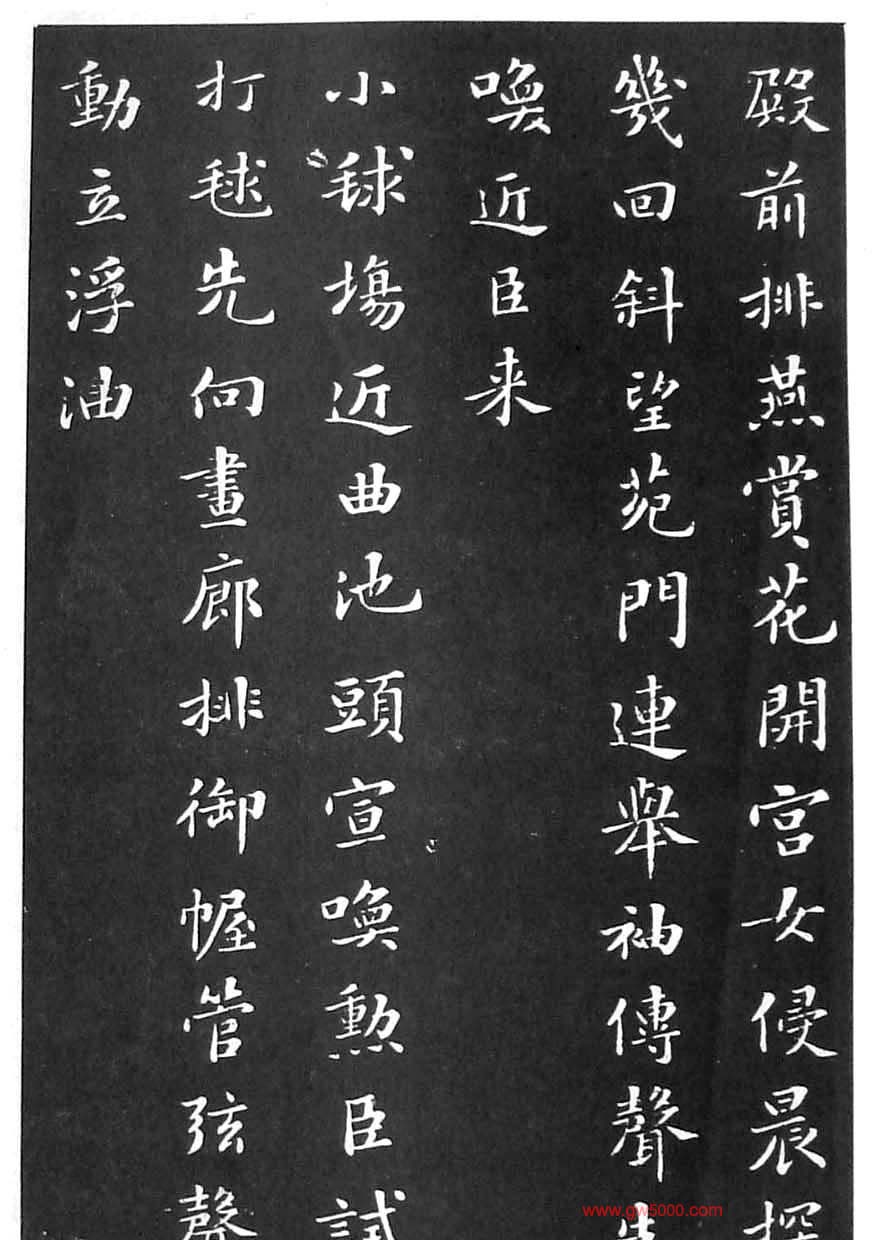 殿前排燕賞花開宮女侵晨探
幾回斜望苑門連舉袖傳聲先
喚近臣来
小毬場近曲池頭宣喚勲臣試
打毬先向畫廊排御幄管弦聲
動立浮油
www.gw5000.com